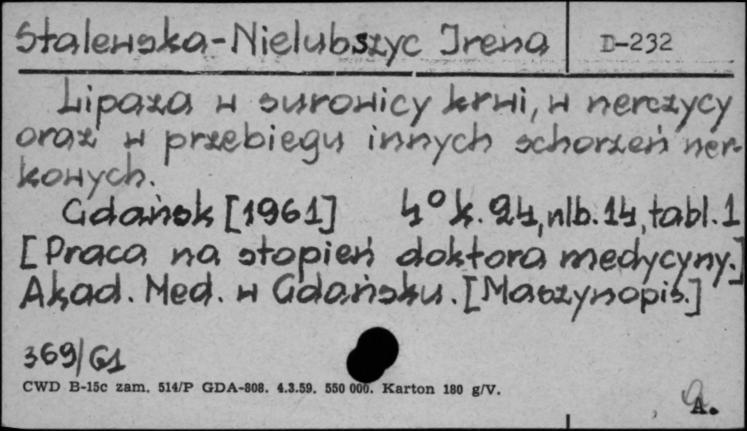 Stalewska-Nielubszyc Irena D-232
Lipaza w surowicy krwi, w nerczycy
oraz w przebiegu innych schorzeń ner-
kowych.
Gdańsk [1961] 4° k. 24, nlb. 14, tabl. 1
[Praca na stopień doktora medycyny.]
Akad. Med. w Gdańsku. [Maszynopis.]
369/61
CWD B-15c zam. 514/P GDA-808. 4.3.59. 550 000. Karton 180 g/V.
A.